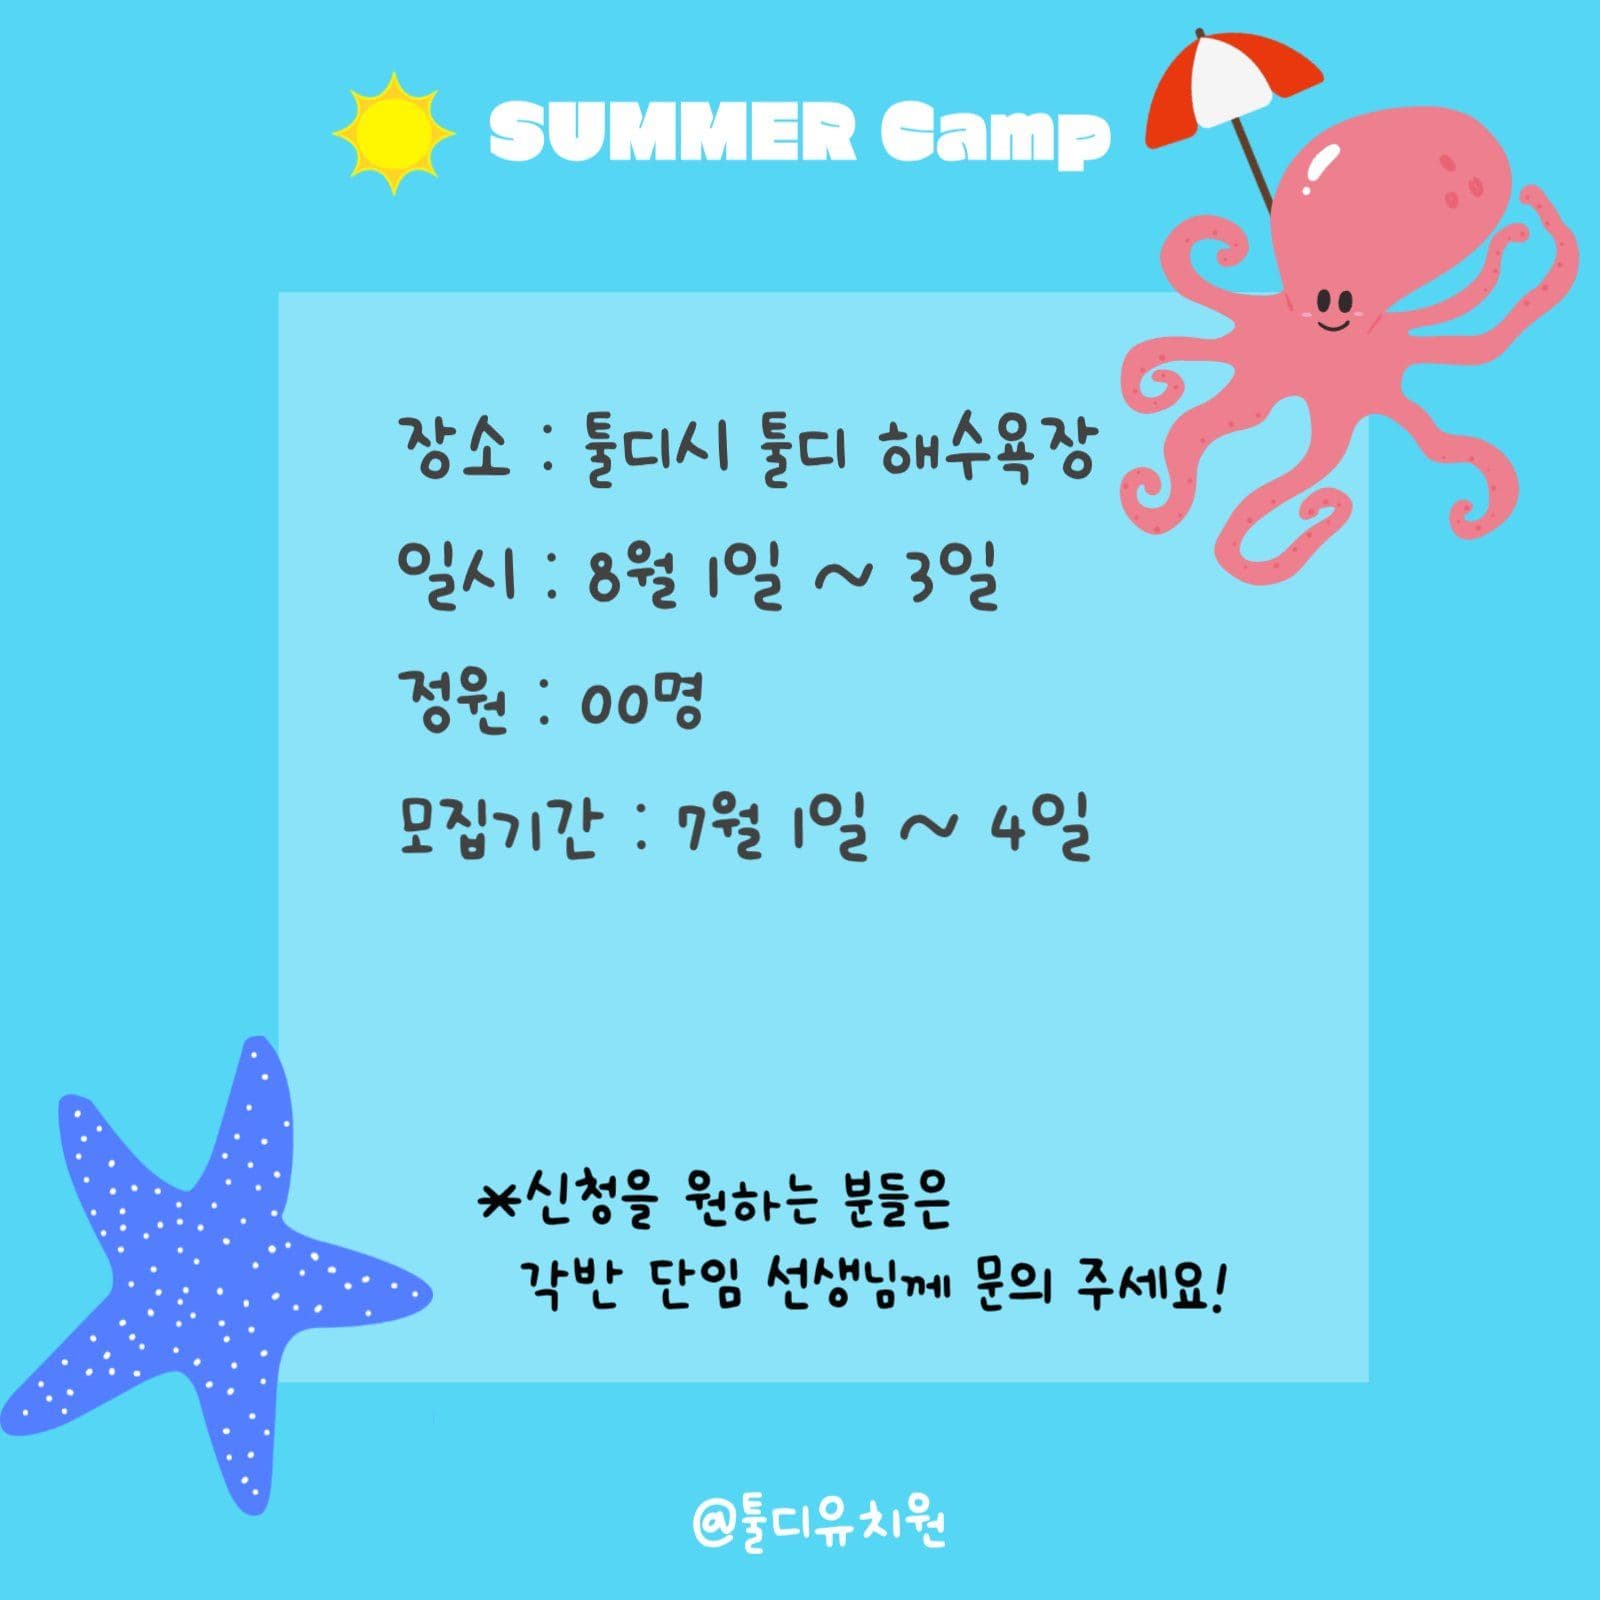 SUMMER Camp
장소 : 툴디시 툴디 해수욕장
일시 : 8월 1일 ~ 3일
정원 : 00명
모집기간 : 7월 1일 ~ 4일
*신청을 원하는 분들은
각반 단임 선생님께 문의 주세요!
@툴디유치원